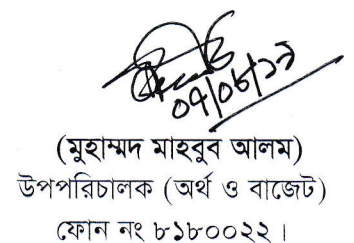 (মুহাম্মদ মাহবুব আলম)
উপপরিচালক (অর্থ ও বাজেট)
ফোন নং ৮১৮০০২২।